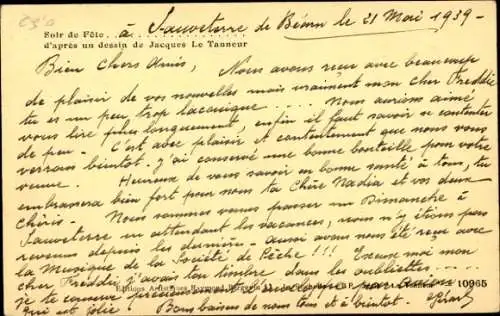 Soir de Fête . . à Sauveterre de Béarn le 21 Mai 1939 -
d'après un dessin de Jacques Le Tanneur
Bien Chers Amis, Nous avons reçu avec beaucoup
de plaisir de vos nouvelles mais vraiment mon cher Freddie
tu es un peu trop laconique .... Nous aurions aimé
vous lire plus longuement, enfin il faut savoir se contenter
de peu - C'est avec plaisir et contentement que nous vous
verrons bientôt. J'ai conservé une bonne bouteille pour votre
venue. Heureux de vous savoir en bonne santé à tous, tu
embrassera bien fort pour nous ta Chère Nadia et vos deux
chéris - Nous sommes venus passer un Dimanche à
Sauveterre en attendant les vacances, nous n'y étions pas
revenus depuis les dernières - aussi avons nous été reçu avec
la Musique de la Société de Pêche !!! Excuse moi mon
cher Freddie j'avais ton timbre dans les oubliettes ....
je te conserve par
Editions Artistiques Raymond 10965
qui est jolie . Bons baisers de nous tous et à bientôt - Gérard